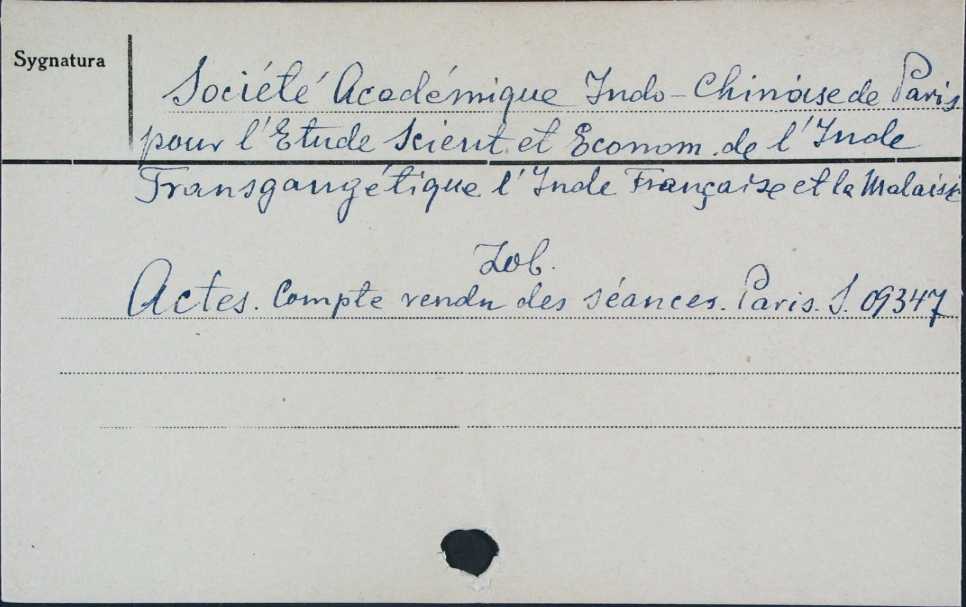 Sygnatura
Société Académique Indo-Chinoise de Paris
pour l'Etude Scient. et Econom. de l'Inde
Transgangétique l'Inde Française et la Malaisie
Zob.
Actes. Compte rendu des séances. Paris. S. 09347